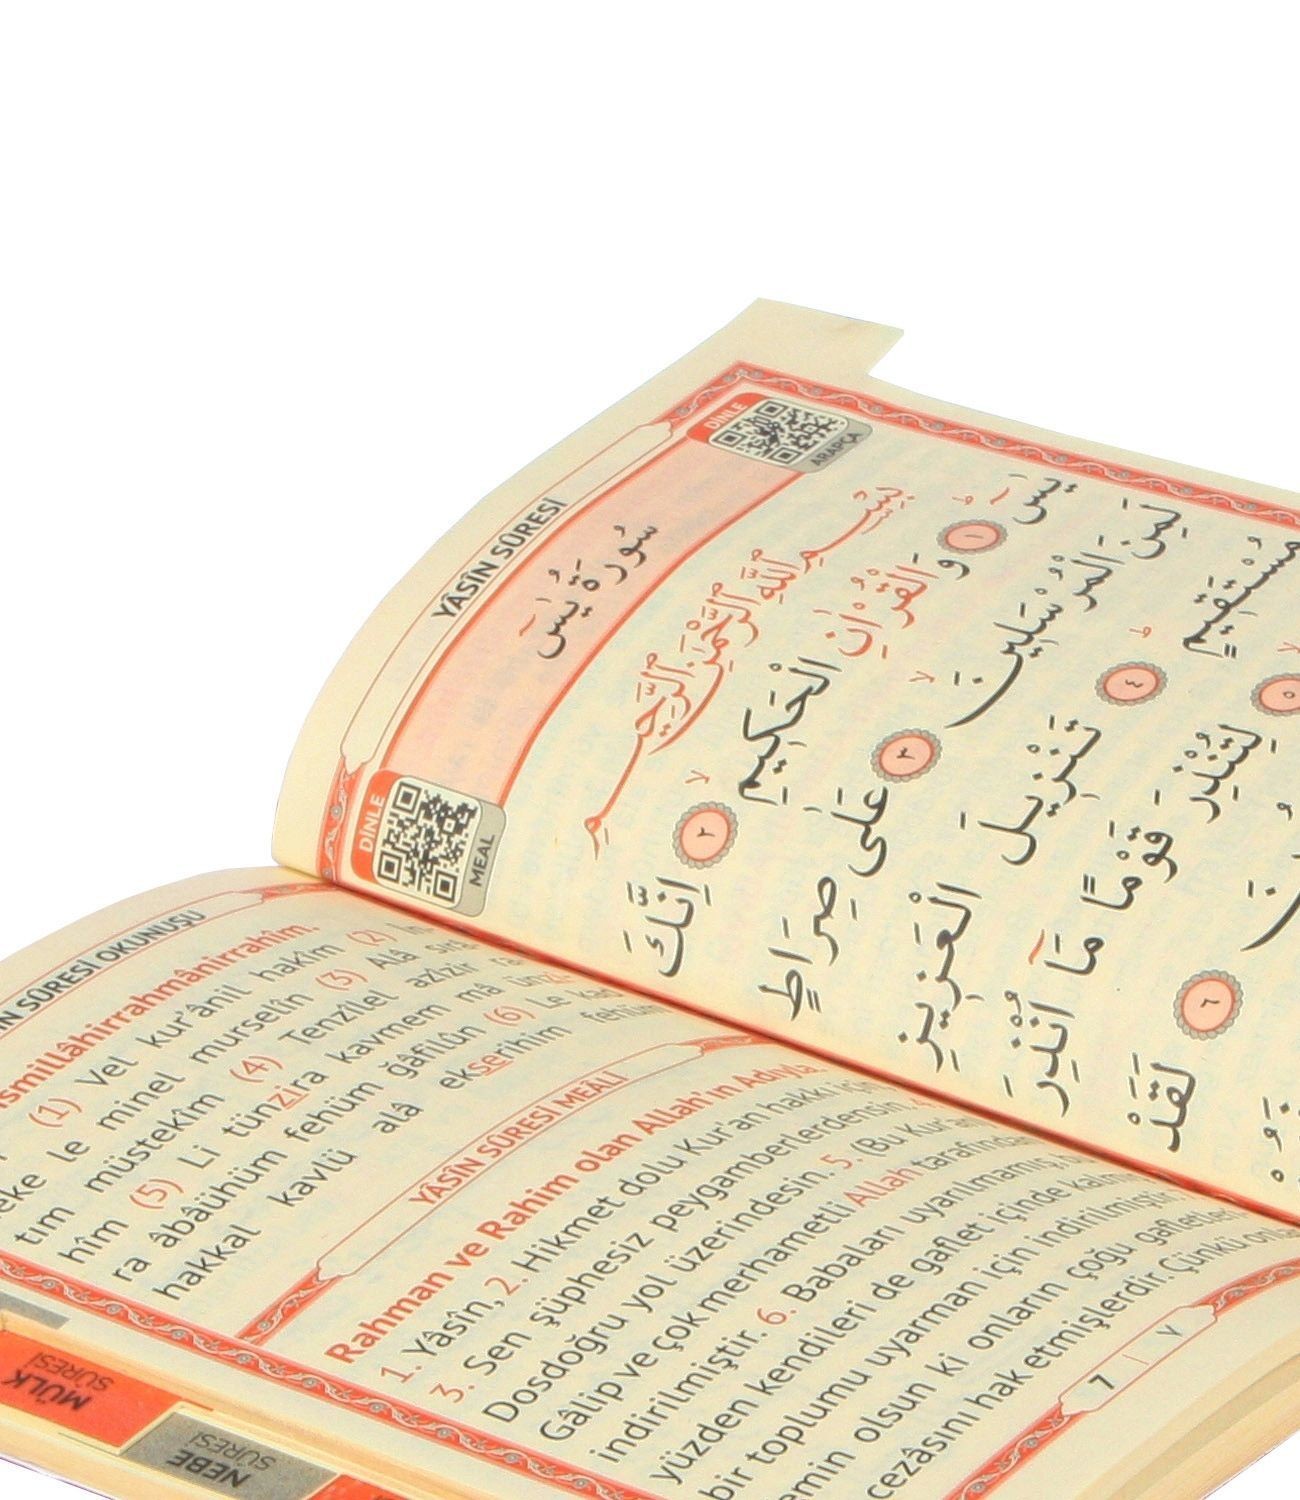 YÂSÎN SÛRESİ
DİNLE
ARAPÇA
سُورَةُ يٰسٓ
DİNLE
MEAL
بِسْمِ اللّٰهِ الرَّحْمٰنِ الرَّحِيمِ
يٰسٓ ﴿١﴾ وَالْقُرْاٰنِ الْحَكِيمِ ﴿٢﴾ اِنَّكَ
لَمِنَ الْمُرْسَلِينَ ﴿٣﴾ عَلٰى صِرَاطٍ
مُسْتَقِيمٍ ﴿٤﴾ تَنْزِيلَ الْعَزِيزِ
﴿٥﴾ لِتُنْذِرَ قَوْمًا مَٓا اُنْذِرَ
﴿٦﴾ لَقَدْ
SÛRESİ OKUNUŞU
smillâhirrahmânirrahîm.
(1) Vel kur'ânil hakîm (2) İn
eke le minel murselîn (3) Alâ sırâ
tim müstekîm (4) Tenzîlel azîzir ra
hîm (5) Li tünzira kavmem mâ ün
ra âbâühüm fehüm ğâfilûn (6) Le kad
hakkal kavlü alâ ekserihim fehüm
YÂSÎN SÛRESİ MEÂLİ
Rahman ve Rahim olan Allah'ın Adıyla.
1. Yâsîn, 2. Hikmet dolu Kur'an hakkı için
3. Sen şüphesiz peygamberlerdensin.
Dosdoğru yol üzerindesin. 5. (Bu Kur'an
Gâlip ve çok merhametli Allah tarafından
indirilmiştir. 6. Babaları uyarılmamış,
yüzden kendileri de gaflet içinde
bir toplumu uyarman için indirilmiştir.
emin olsun ki onların çoğu
cezâsını hak etmişlerdir. Çünkü
7
٧
MÜLK
SÛRESİ
NEBE
SÛRESİ